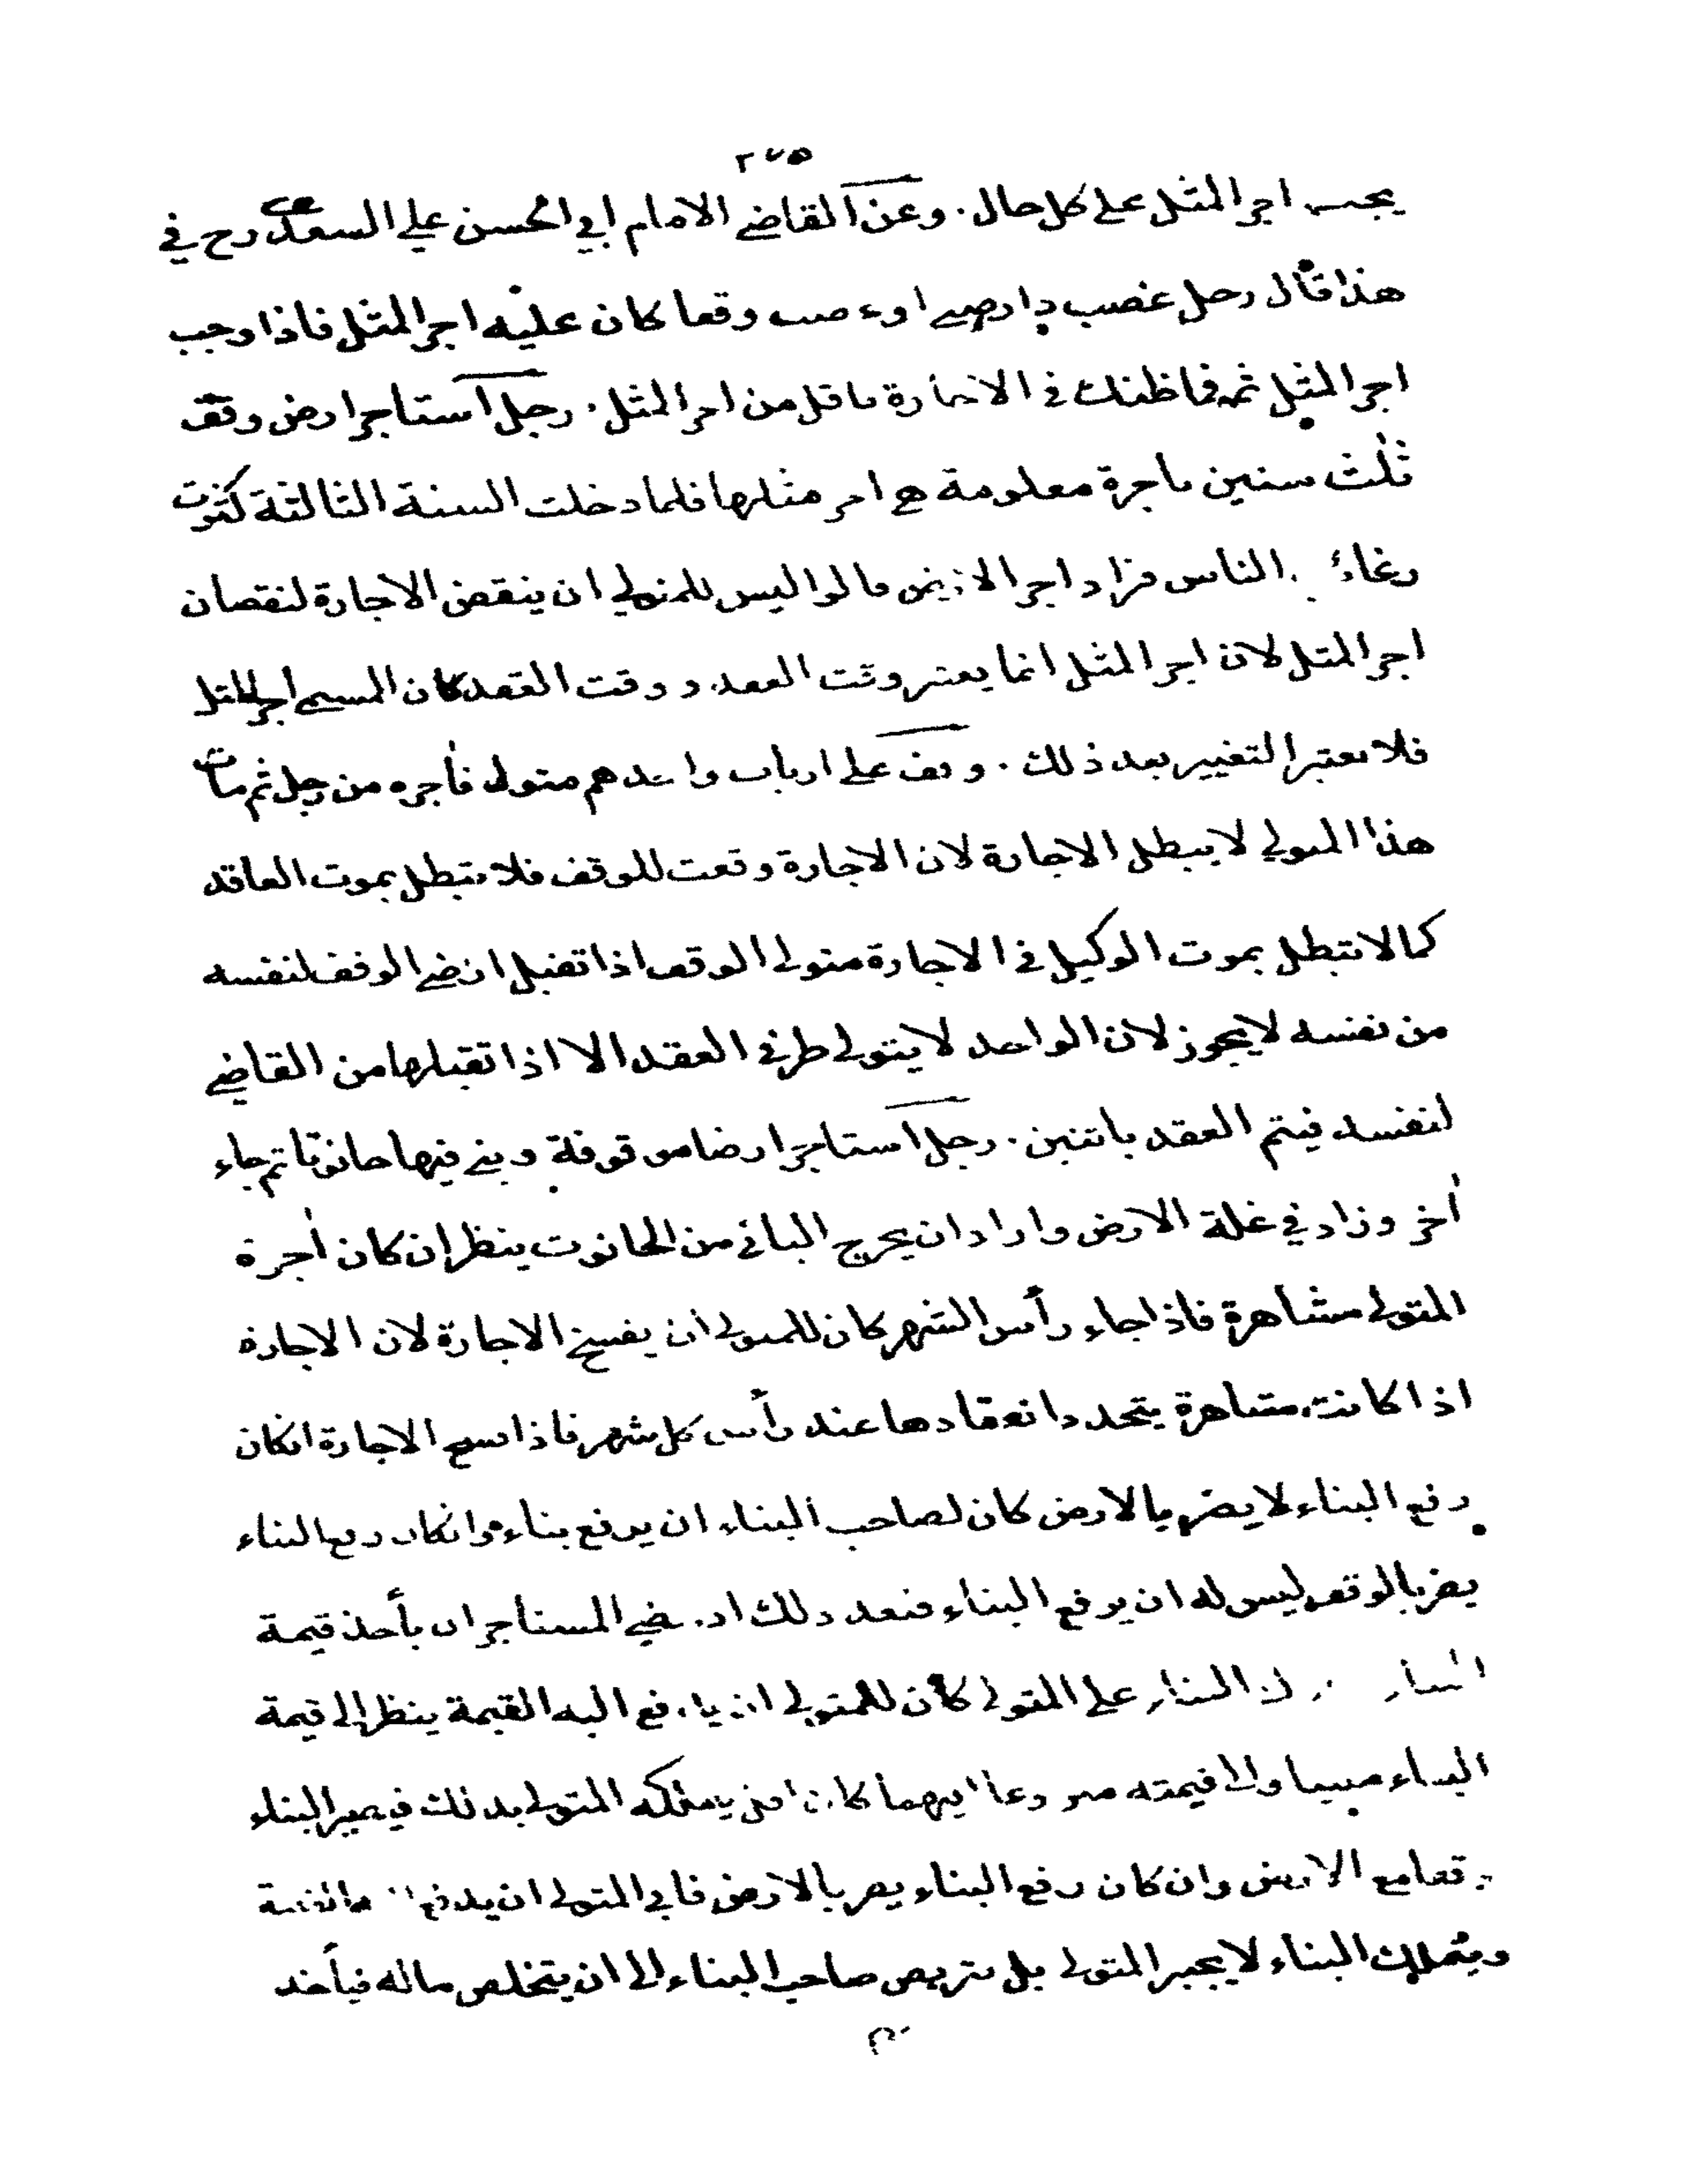 ٢٧٥
يجب اجر المثل على كل حال . وعن القاضي الامام ابي الحسن علي السعدي رح في
هذا قال رجل غصب دار صبي او غصب وقفا كان عليه اجر المثل فاذا وجب
اجر المثل ثمه فما ظنك في الاجارة باقل من اجر المثل . رجل استاجر ارض وقف
ثلث سنين باجرة معلومة هي اجر مثلها فلما دخلت السنة الثالثة كثرت
الناس فزاد اجر الارض قالوا ليس للمتولي ان ينقض الاجارة لنقصان
اجر المثل لان اجر المثل انما يعتبر وقت العقد و وقت العقد كان المسمى اجر المثل
فلا يعتبر التغيير بعد ذلك . وقف على ارباب واحدهم متولي فأجره من رجل ثم مات
هذا المتولي لا يبطل الاجارة لان الاجارة وقعت للوقف فلا تبطل بموت العاقد
كما لا تبطل بموت الوكيل في الاجارة متولي الوقف اذا تقبل ارض الوقف لنفسه
من نفسه لا يجوز لان الواحد لا يتولى طرفي العقد الا اذا تقبلها من القاضي
لنفسه فيتم العقد باثنين . رجل استاجر ارضا موقوفة وبنى فيها حانوتا ثم جاء
أخر وزاد في غلة الارض واراد ان يخرج الباني من الحانوت ينظر ان كان أجرة
المتولي مشاهرة فاذا جاء رأس الشهر كان للمتولي ان يفسخ الاجارة لان الاجارة
اذا كانت مشاهرة يتجدد انعقادها عند رأس كل شهر فاذا فسخ الاجارة انكان
رفع البناء لا يضر بالارض كان لصاحب البناء ان يرفع بناءه وانكان رفع البناء
يضر بالوقف ليس له ان يرفع البناء فبعد ذلك ان رضي المستأجر ان يأخذ قيمة
البناء البناء على المتولي كان للمتولي ان يدفع اليه القيمة ينظر الى قيمة
البناء مبنيا والى قيمته منزوعا ايهما كان يتملكه المتولي بذلك فيصير البناء
وقفا مع الارض وان كان رفع البناء يضر بالارض فابى المتولي ان يدفع القيمة
ويتملك البناء لا يجبر المتولي بل يتربص صاحب البناء الى ان يتخلص ماله فيأخذ